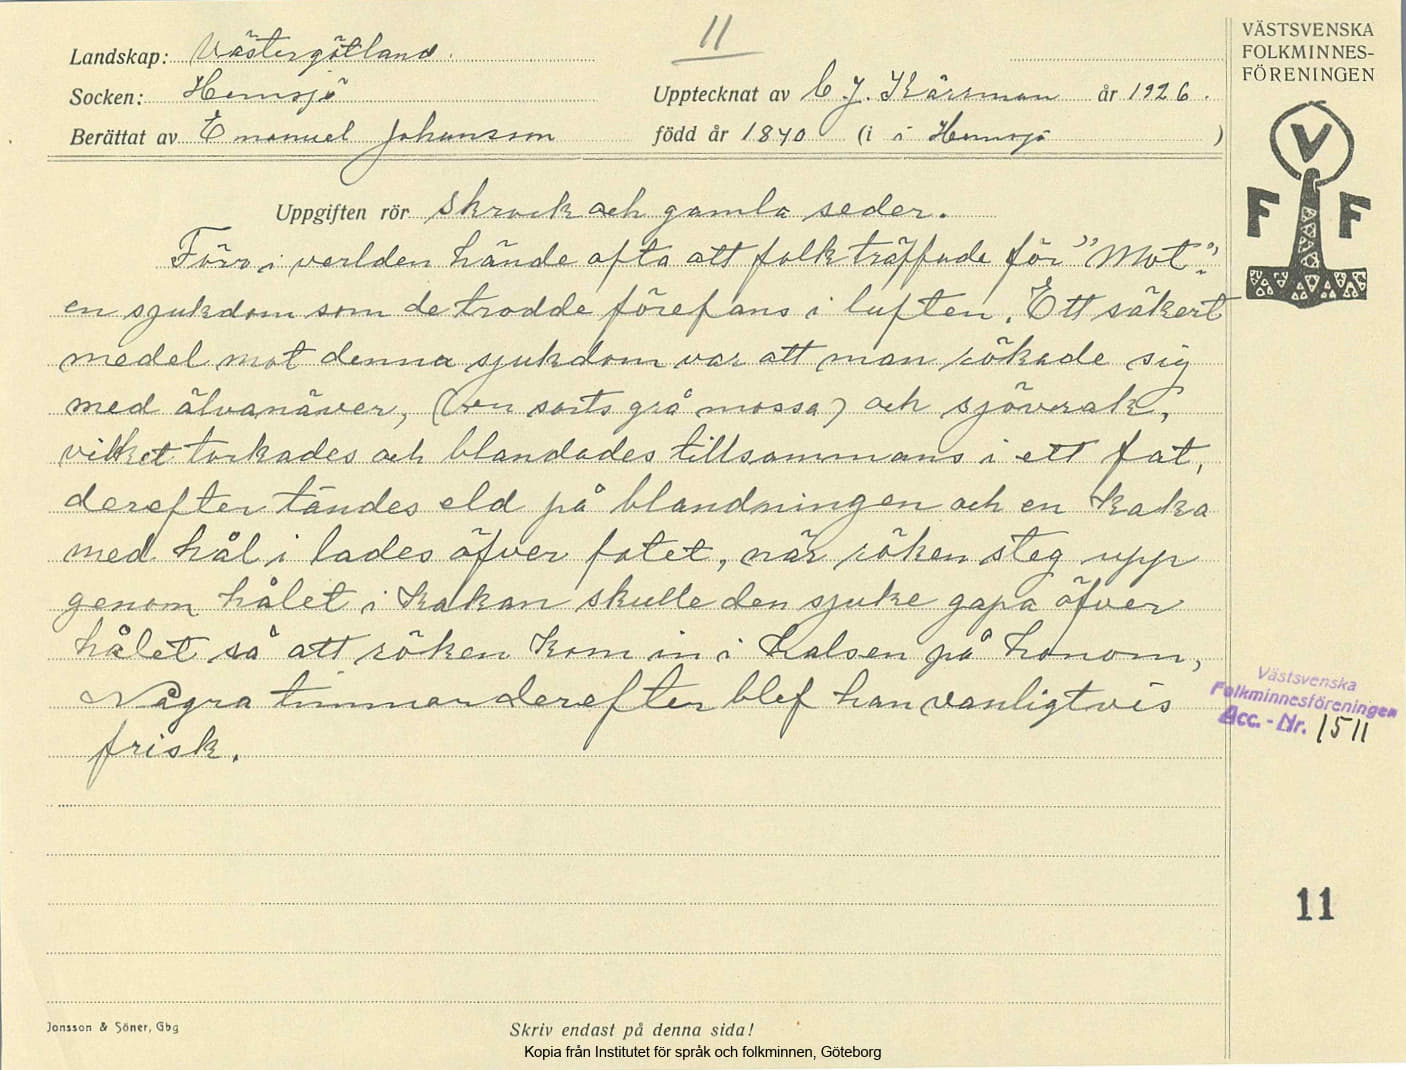 11
VÄSTSVENSKA
FOLKMINNES-
FÖRENINGEN
Landskap: Västergötland.
Socken: Hemsjö
Upptecknat av C. J. Kärrman år 1926.
Berättat av Emanuel Johansson
född år 1840 (i i Hemsjö )
V
F F
Uppgiften rör skrock och gamla seder.
Förr i verlden hände ofta att folk träffade för "Mot".
en sjukdom som de trodde förefans i luften. Ett säkert
medel mot denna sjukdom var att man rökade sig
med älvanäver, (en sorts grå mossa) och sjövrak,
vilket torkades och blandades tillsammans i ett fat,
derefter tändes eld på blandningen och en kaka
med hål i lades öfver fatet, när röken steg upp
genom hålet i kakan skulle den sjuke gapa öfver
hålet så att röken kom in i halsen på honom,
Några timmar derefter blef han vanligtvis
frisk.
Västsvenska
Folkminnesföreningen
Acc.-Nr. 1511
11
Jonsson & Söner, Gbg
Skriv endast på denna sida!
Kopia från Institutet för språk och folkminnen, Göteborg